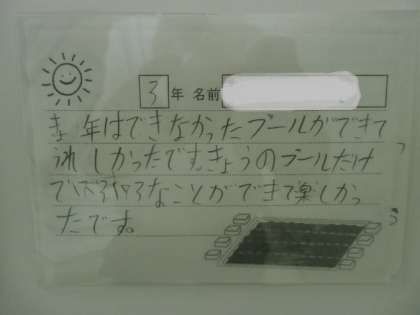 3 年 名前
きょ年はできなかったプールができて
うれしかったですきょうのプールだけ
でいろいろなことができて楽しかっ
たです。